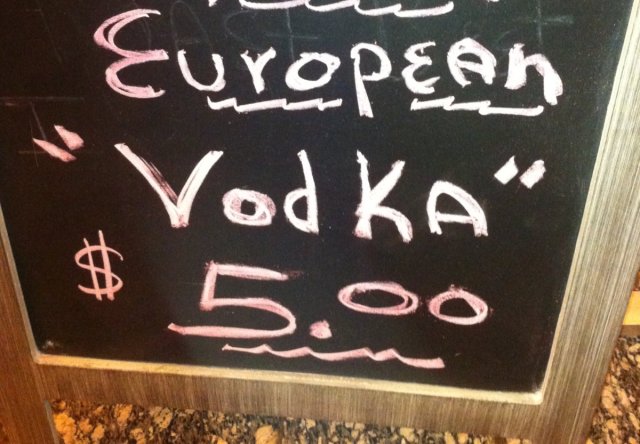 European
"Vodka"
$5.00